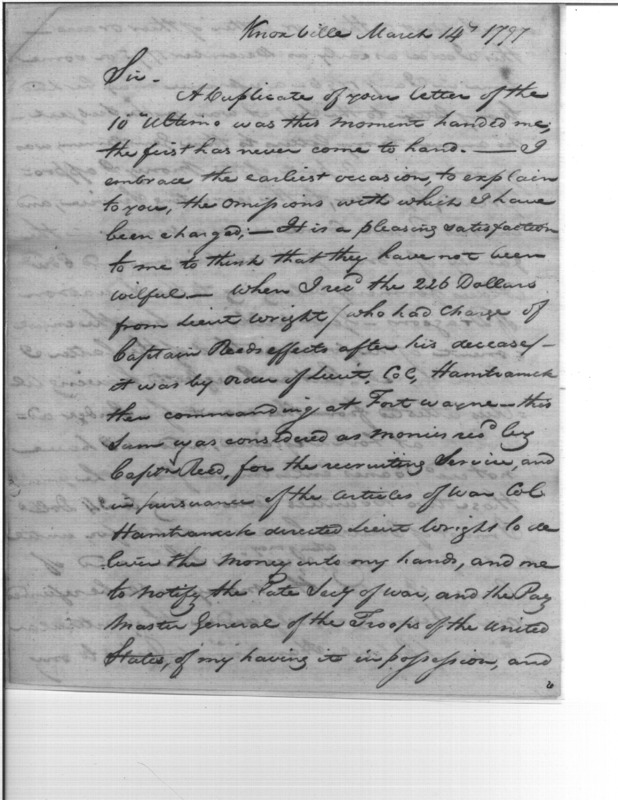 Knoxville March 14th 1797
Sir -
A Duplicate of your letter of the
10th Ultimo was this moment handed me,
the first has never come to hand. — I
embrace the earliest occasion, to explain
to you, the omissions with which I have
been charged; — It is a pleasing satisfaction
to me to think that they have not been
wilful — When I recd the 226 Dollars
from Lieut Wright / who had charge of
Captain Reeds effects after his decease / -
it was by order of Lieut, Col, Hamtramck
then commanding at Fort Wayne — this
Sum was considered as monies recd by
Captn Reed, for the recruiting Service, and
in pursuance of the articles of war Col
Hamtramck directed Lieut Wright to de
liver the money into my hands, and me
to notify the late Secy of war, and the Pay
Master General of the Troops of the United
States, of my having it in possession, and